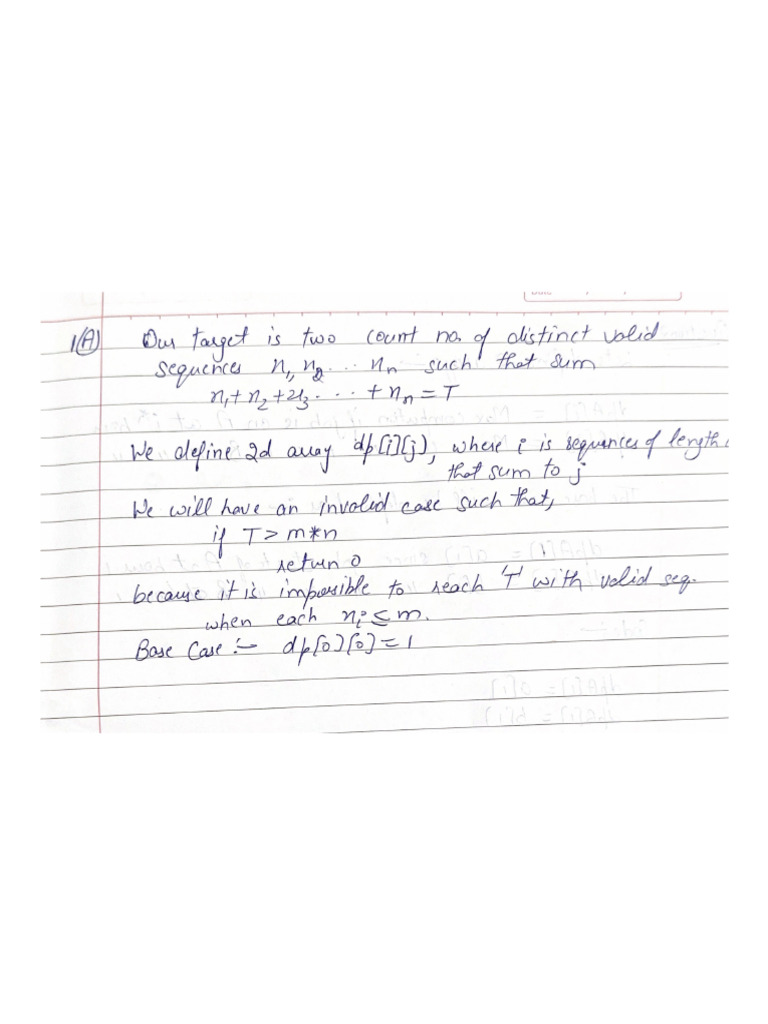 1(A) Our target is two count no. of distinct valid
sequences n1, n2 ... nn such that sum
n1 + n2 + n3 ... + nn = T
We define 2d array dp[i][j), where i is sequences of length
that sum to j
We will have an invalid case such that,
if T > m*n
return 0
because it is impossible to reach 'T' with valid seq.
when each ni ≤ m.
Base Case :- dp[0][0] = 1